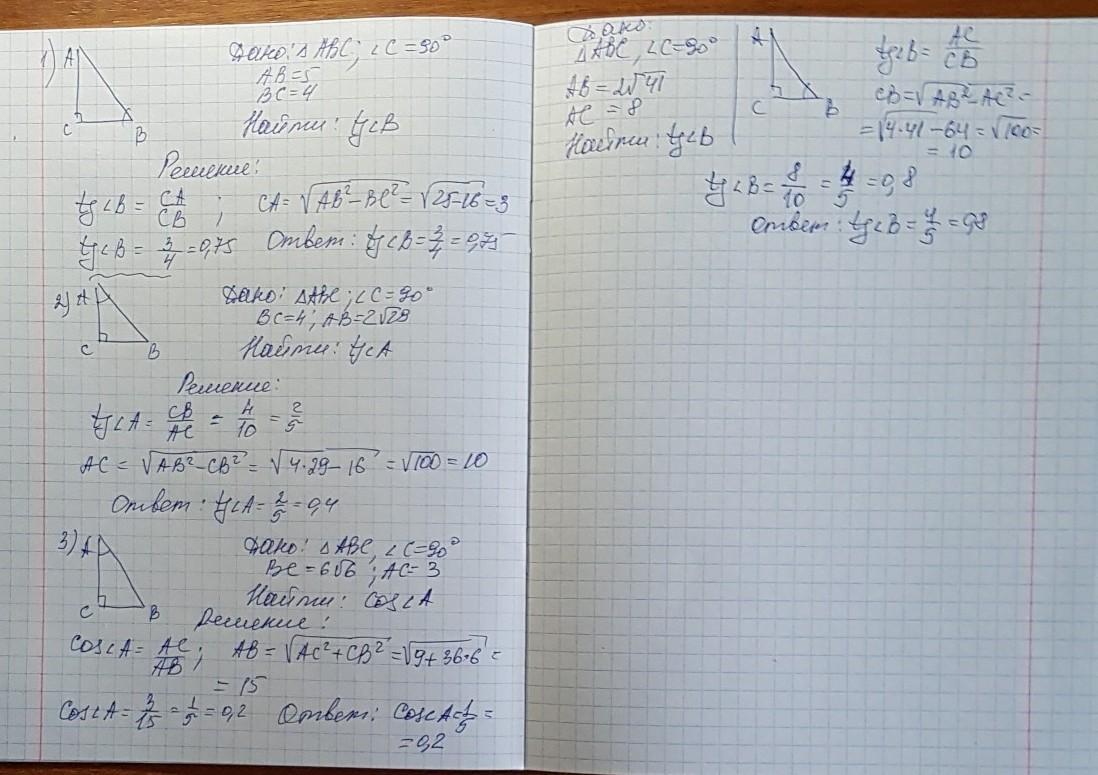 1) A C B
Дано: △ABC; ∠C=90°
AB=5
BC=4
Найти: tg∠B
Решение:
tg∠B = CA/CB ; CA = √(AB²−BC²) = √(25−16) = 3
tg∠B = 3/4 = 0,75 Ответ: tg∠B = 3/4 = 0,75
2) A C B
Дано: △ABC; ∠C=90°
BC=4; AB=2√29
Найти: tg∠A
Решение:
tg∠A = CB/AC = 4/10 = 2/5
AC = √(AB²−CB²) = √(4·29−16) = √100 = 10
Ответ: tg∠A = 2/5 = 0,4
3) A C B
Дано: △ABC, ∠C=90°
BC = 6√6 ; AC = 3
Найти: cos∠A
Решение:
cos∠A = AC/AB ; AB = √(AC²+CB²) = √(9+36·6) =
= 15
cos∠A = 3/15 = 1/5 = 0,2 Ответ: cos∠A = 1/5 =
= 0,2
Дано:
△ABC, ∠C=90°
AB = 2√41
AC = 8
Найти: tg∠B
A C B
tg∠B = AC/CB
CB = √(AB²−AC²) =
= √(4·41−64) = √100 =
= 10
tg∠B = 8/10 = 4/5 = 0,8
Ответ: tg∠B = 4/5 = 0,8